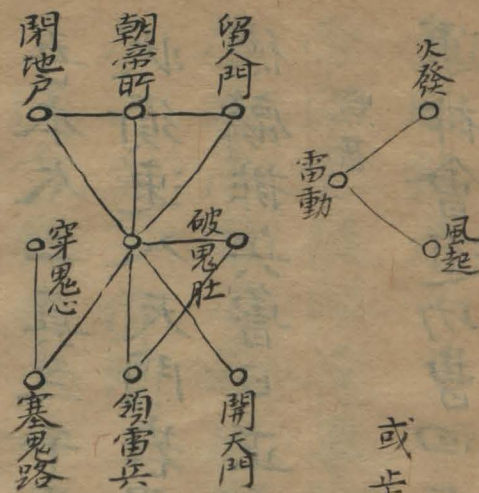 火發
雷動
風起
或步
留人門
朝帝所
閉地户
破鬼肚
穿鬼心
開天門
領雷兵
塞鬼路